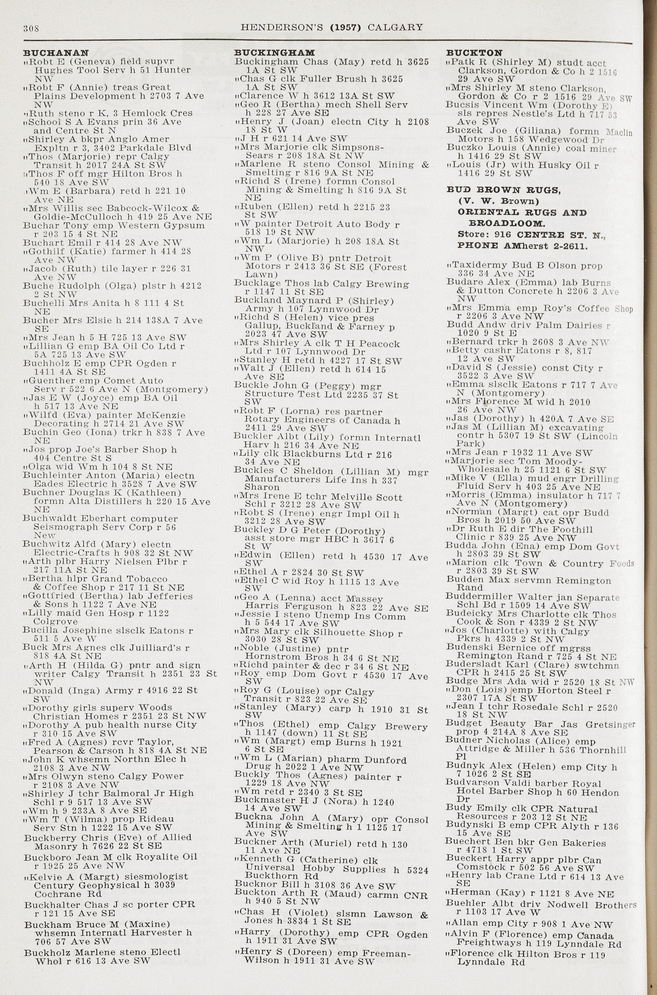 308
HENDERSON'S (1957) CALGARY
BUCHANAN
"Robt E (Geneva) field supvr
Hughes Tool Serv h 51 Hunter
NW
"Robt F (Annie) treas Great
Plains Development h 2703 7 Ave
NW
"Ruth steno r K, 3 Hemlock Cres
"School S A Evans prin 36 Ave
and Centre St N
"Shirley A bkpr Anglo Amer
Expltn r 3, 3402 Parkdale Blvd
"Thos (Marjorie) repr Calgry
Transit h 2017 24A St SW
"Thos F off mgr Hilton Bros h
540 18 Ave SW
"Wm E (Barbara) retd h 221 10
Ave NE
"Mrs Willis sec Babcock-Wilcox &
Goldie-McCulloch h 419 25 Ave NE
Buchar Tony emp Western Gypsum
r 203 15 4 St NE
Buchart Emil r 414 28 Ave NW
"Gothilf (Katie) farmer h 414 28
Ave NW
"Jacob (Ruth) tile layer r 226 31
Ave NW
Buche Rudolph (Olga) plstr h 4212
2 St NW
Buchelli Mrs Anita h 8 111 4 St
NE
Bucher Mrs Elsie h 214 138A 7 Ave
SE
"Mrs Jean h 5 H 725 13 Ave SW
"Lillian G emp BA Oil Co Ltd r
5A 725 13 Ave SW
Buchholz E emp CPR Ogden r
1411 4A St SE
"Guenther emp Comet Auto
Serv r 522 6 Ave N (Montgomery)
"Jas E W (Joyce) emp BA Oil
h 517 13 Ave NE
"Wilfd (Eva) painter McKenzie
Decorating h 2714 21 Ave SW
Buchin Geo (Iona) trkr h 838 7 Ave
NE
"Jos prop Joe's Barber Shop h
404 Centre St S
"Olga wid Wm h 104 8 St NE
Buchleinter Anton (Maria) electn
Eades Electric h 3528 7 Ave SW
Buchner Douglas K (Kathleen)
formn Alta Distillers h 220 15 Ave
NE
Buchwaldt Eberhart computer
Seismograph Serv Corp r 56
New
Buchwitz Alfd (Mary) electn
Electric-Crafts h 908 32 St NW
"Arth plbr Harry Nielsen Plbr r
217 11A St NE
"Bertha hlpr Grand Tobacco
& Coffee Shop r 217 11 St NE
"Gottfried (Bertha) lab Jefferies
& Sons h 1122 7 Ave NE
"Lilly maid Gen Hosp r 1122
Colgrove
Bucilla Josephine slsclk Eatons r
511 5 Ave W
Buck Mrs Agnes clk Juilliard's r
818 4A St NE
"Arth H (Hilda G) pntr and sign
writer Calgry Transit h 2351 23 St
NW
"Donald (Inga) Army r 4916 22 St
SW
"Dorothy girls superv Woods
Christian Homes r 2351 23 St NW
"Dorothy A pub health nurse City
r 310 15 Ave SW
"Fred A (Agnes) rcvr Taylor,
Pearson & Carson h 818 4A St NE
"John K whsemn Northn Elec h
2108 3 Ave NW
"Mrs Olwyn steno Calgry Power
r 2108 3 Ave NW
"Shirley J tchr Balmoral Jr High
Schl r 9 517 13 Ave SW
"Wm h 9 233A 8 Ave SE
"Wm T (Wilma) prop Rideau
Serv Stn h 1222 15 Ave SW
Buckberry Chris (Eve) of Allied
Masonry h 7626 22 St SE
Buckboro Jean M clk Royalite Oil
r 1925 25 Ave NW
"Kelvie A (Margt) siesmologist
Century Geophysical h 3039
Cochrane Rd
Buckhalter Chas J sc porter CPR
r 121 15 Ave SE
Buckham Bruce M (Maxine)
whsemn Internatl Harvester h
706 57 Ave SW
Buckholz Marlene steno Electl
Whol r 616 13 Ave SW
BUCKINGHAM
Buckingham Chas (May) retd h 3625
1A St SW
"Chas G clk Fuller Brush h 3625
1A St SW
"Clarence W h 3612 13A St SW
"Geo R (Bertha) mech Shell Serv
h 228 27 Ave SE
"Henry J (Joan) electn City h 2108
18 St W
"J H r 621 14 Ave SW
"Mrs Marjorie clk Simpsons-
Sears r 208 18A St NW
"Marlene R steno Consol Mining &
Smelting r 816 9A St NE
"Richd S (Irene) formn Consol
Mining & Smelting h 816 9A St
NE
"Ruben (Ellen) retd h 2215 23
St SW
"W painter Detroit Auto Body r
518 19 St NW
"Wm L (Marjorie) h 208 18A St
NW
"Wm P (Olive B) pntr Detroit
Motors r 2413 36 St SE (Forest
Lawn)
Bucklage Thos lab Calgry Brewing
r 1147 11 St SE
Buckland Maynard P (Shirley)
Army h 107 Lynnwood Dr
"Richd S (Helen) vice pres
Gallup, Buckland & Farney p
2023 47 Ave SW
"Mrs Shirley A clk T H Peacock
Ltd r 107 Lynnwood Dr
"Stanley H retd h 4227 17 St SW
"Walt J (Ellen) retd h 614 15
Ave SE
Buckle John G (Peggy) mgr
Structure Test Ltd 2235 37 St
SW
"Robt F (Lorna) res partner
Rotary Engineers of Canada h
2411 29 Ave SW
Buckler Albt (Lily) formn Internatl
Harv h 216 34 Ave NE
"Lily clk Blackburns Ltd r 216
34 Ave NE
Buckles C Sheldon (Lillian M) mgr
Manufacturers Life Ins h 337
Sharon
"Mrs Irene E tchr Melville Scott
Schl r 3212 28 Ave SW
"Robt S (Irene) engr Impl Oil h
3212 28 Ave SW
Buckley D G Peter (Dorothy)
asst store mgr HBC h 3617 6
St W
"Edwin (Ellen) retd h 4530 17 Ave
SW
"Ethel A r 2824 30 St SW
"Ethel C wid Roy h 1115 13 Ave
SW
"Geo A (Lenna) acct Massey
Harris Ferguson h 823 22 Ave SE
"Jessie I steno Unemp Ins Comm
h 5 544 17 Ave SW
"Mrs Mary clk Silhouette Shop r
3030 28 St SW
"Noble (Justine) pntr
Hornstrom Bros h 34 6 St NE
"Richd painter & dec r 34 6 St NE
"Roy emp Dom Govt r 4530 17 Ave
SW
"Roy G (Louise) opr Calgry
Transit r 823 22 Ave SE
"Stanley (Mary) carp h 1910 31 St
SW
"Thos (Ethel) emp Calgry Brewery
h 1147 (down) 11 St SE
"Wm (Margt) emp Burns h 1921
6 St SE
"Wm L (Marian) pharm Dunford
Drug h 2022 1 Ave NW
Buckly Thos (Agnes) painter r
1229 18 Ave NW
"Wm retd r 2340 3 St SE
Buckmaster H J (Nora) h 1240
14 Ave SW
Buckna John A (Mary) opr Consol
Mining & Smelting h 1 1125 17
Ave SW
Buckner Arth (Muriel) retd h 130
11 Ave NE
"Kenneth G (Catherine) clk
Universal Hobby Supplies h 5324
Buckthorn Rd
Bucknor Bill h 3108 36 Ave SW
Buckton Arth R (Maud) carmn CNR
h 940 5 St NW
"Chas H (Violet) slsmn Lawson &
Jones h 3834 1 St SE
"Harry (Dorothy) emp CPR Ogden
h 1911 31 Ave SW
"Henry S (Doreen) emp Freeman-
Wilson h 1911 31 Ave SW
BUCKTON
"Patk R (Shirley M) studt acct
Clarkson, Gordon & Co h 2 1516
29 Ave SW
"Mrs Shirley M steno Clarkson,
Gordon & Co r 2 1516 29 Ave SW
Bucsis Vincent Wm (Dorothy E)
sls repres Nestle's Ltd h 717 53
Ave SW
Buczek Joe (Giliana) formn Maclin
Motors h 158 Wedgewood Dr
Buczko Louis (Annie) coal miner
h 1416 29 St SW
"Louis (Jr) with Husky Oil r
1416 29 St SW
BUD BROWN RUGS,
(V. W. Brown)
ORIENTAL RUGS AND
BROADLOOM.
Store: 916 CENTRE ST. N.,
PHONE AMherst 2-2611.
"Taxidermy Bud B Olson prop
336 34 Ave NE
Budare Alex (Emma) lab Burns
& Dutton Concrete h 2206 3 Ave
NW
"Mrs Emma emp Roy's Coffee Shop
r 2206 3 Ave NW
Budd Andw driv Palm Dairies r
1020 9 St E
"Bernard trkr h 2608 3 Ave NW
"Betty cashr Eatons r 8, 817
12 Ave SW
"David S (Jessie) const City r
3522 3 Ave SW
"Emma slsclk Eatons r 717 7 Ave
N (Montgomery)
"Mrs Florence M wid h 2010
26 Ave NW
"Jas (Dorothy) h 420A 7 Ave SE
"Jas M (Lillian M) excavating
contr h 5307 19 St SW (Lincoln
Park)
"Mrs Jean r 1932 11 Ave SW
"Marjorie sec Tom Moody-
Wholesale h 25 1121 6 St SW
"Mike V (Ella) mud engr Drilling
Fluid Serv h 403 25 Ave NE
"Morris (Emma) insulator h 717 7
Ave N (Montgomery)
"Norman (Margt) cat opr Budd
Bros h 2019 50 Ave SW
"Dr Ruth E dir The Foothill
Clinic r 839 25 Ave NW
Budda John (Ena) emp Dom Govt
h 2803 39 St SW
"Marion clk Town & Country Foods
r 2803 39 St SW
Budden Max servmn Remington
Rand
Buddermiller Walter jan Separate
Schl Bd r 1509 14 Ave SW
Budeicky Mrs Charlotte clk Thos
Cook & Son r 4339 2 St NW
"Jos (Charlotte) with Calgry
Pkrs h 4339 2 St NW
Budenski Bernice off mgrss
Remington Rand r 725 4 St NE
Budersladt Karl (Clare) swtchmn
CPR h 2415 25 St SW
Budge Mrs Ada wid r 2520 18 St NW
"Don (Lois) emp Horton Steel r
2307 17A St SW
"Jean I tchr Rosedale Schl r 2520
18 St NW
Budget Beauty Bar Jas Gretsinger
prop 4 214A 8 Ave SE
Budner Nicholas (Alice) emp
Attridge & Miller h 536 Thornhill
Pl
Budnyk Alex (Helen) emp City h
7 1026 2 St SE
Budvarson Valdi barber Royal
Hotel Barber Shop h 60 Hendon
Dr
Budy Emily clk CPR Natural
Resources r 203 12 St NE
Budynski B emp CPR Alyth r 136
15 Ave SE
Buechert Ben bkr Gen Bakeries
r 4718 1 St SW
Bueckert Harry appr plbr Can
Comstock r 502 56 Ave SW
"Henry lab Crane Ltd r 614 13 Ave
SE
"Herman (Kay) r 1121 8 Ave NE
Buehler Albt driv Nodwell Brothers
r 1103 17 Ave W
"Allan emp City r 908 1 Ave NW
"Alvin F (Florence) emp Canada
Freightways h 119 Lynndale Rd
"Florence clk Hilton Bros r 119
Lynndale Rd